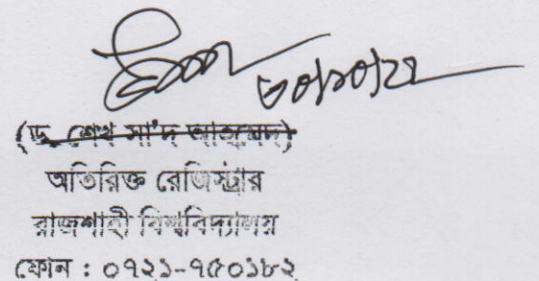 ৩০/১০/২২
(ড. শেখ সা'দ আহমেদ)
অতিরিক্ত রেজিস্ট্রার
রাজশাহী বিশ্ববিদ্যালয়
ফোন : ০৭২১-৭৫০১৮২